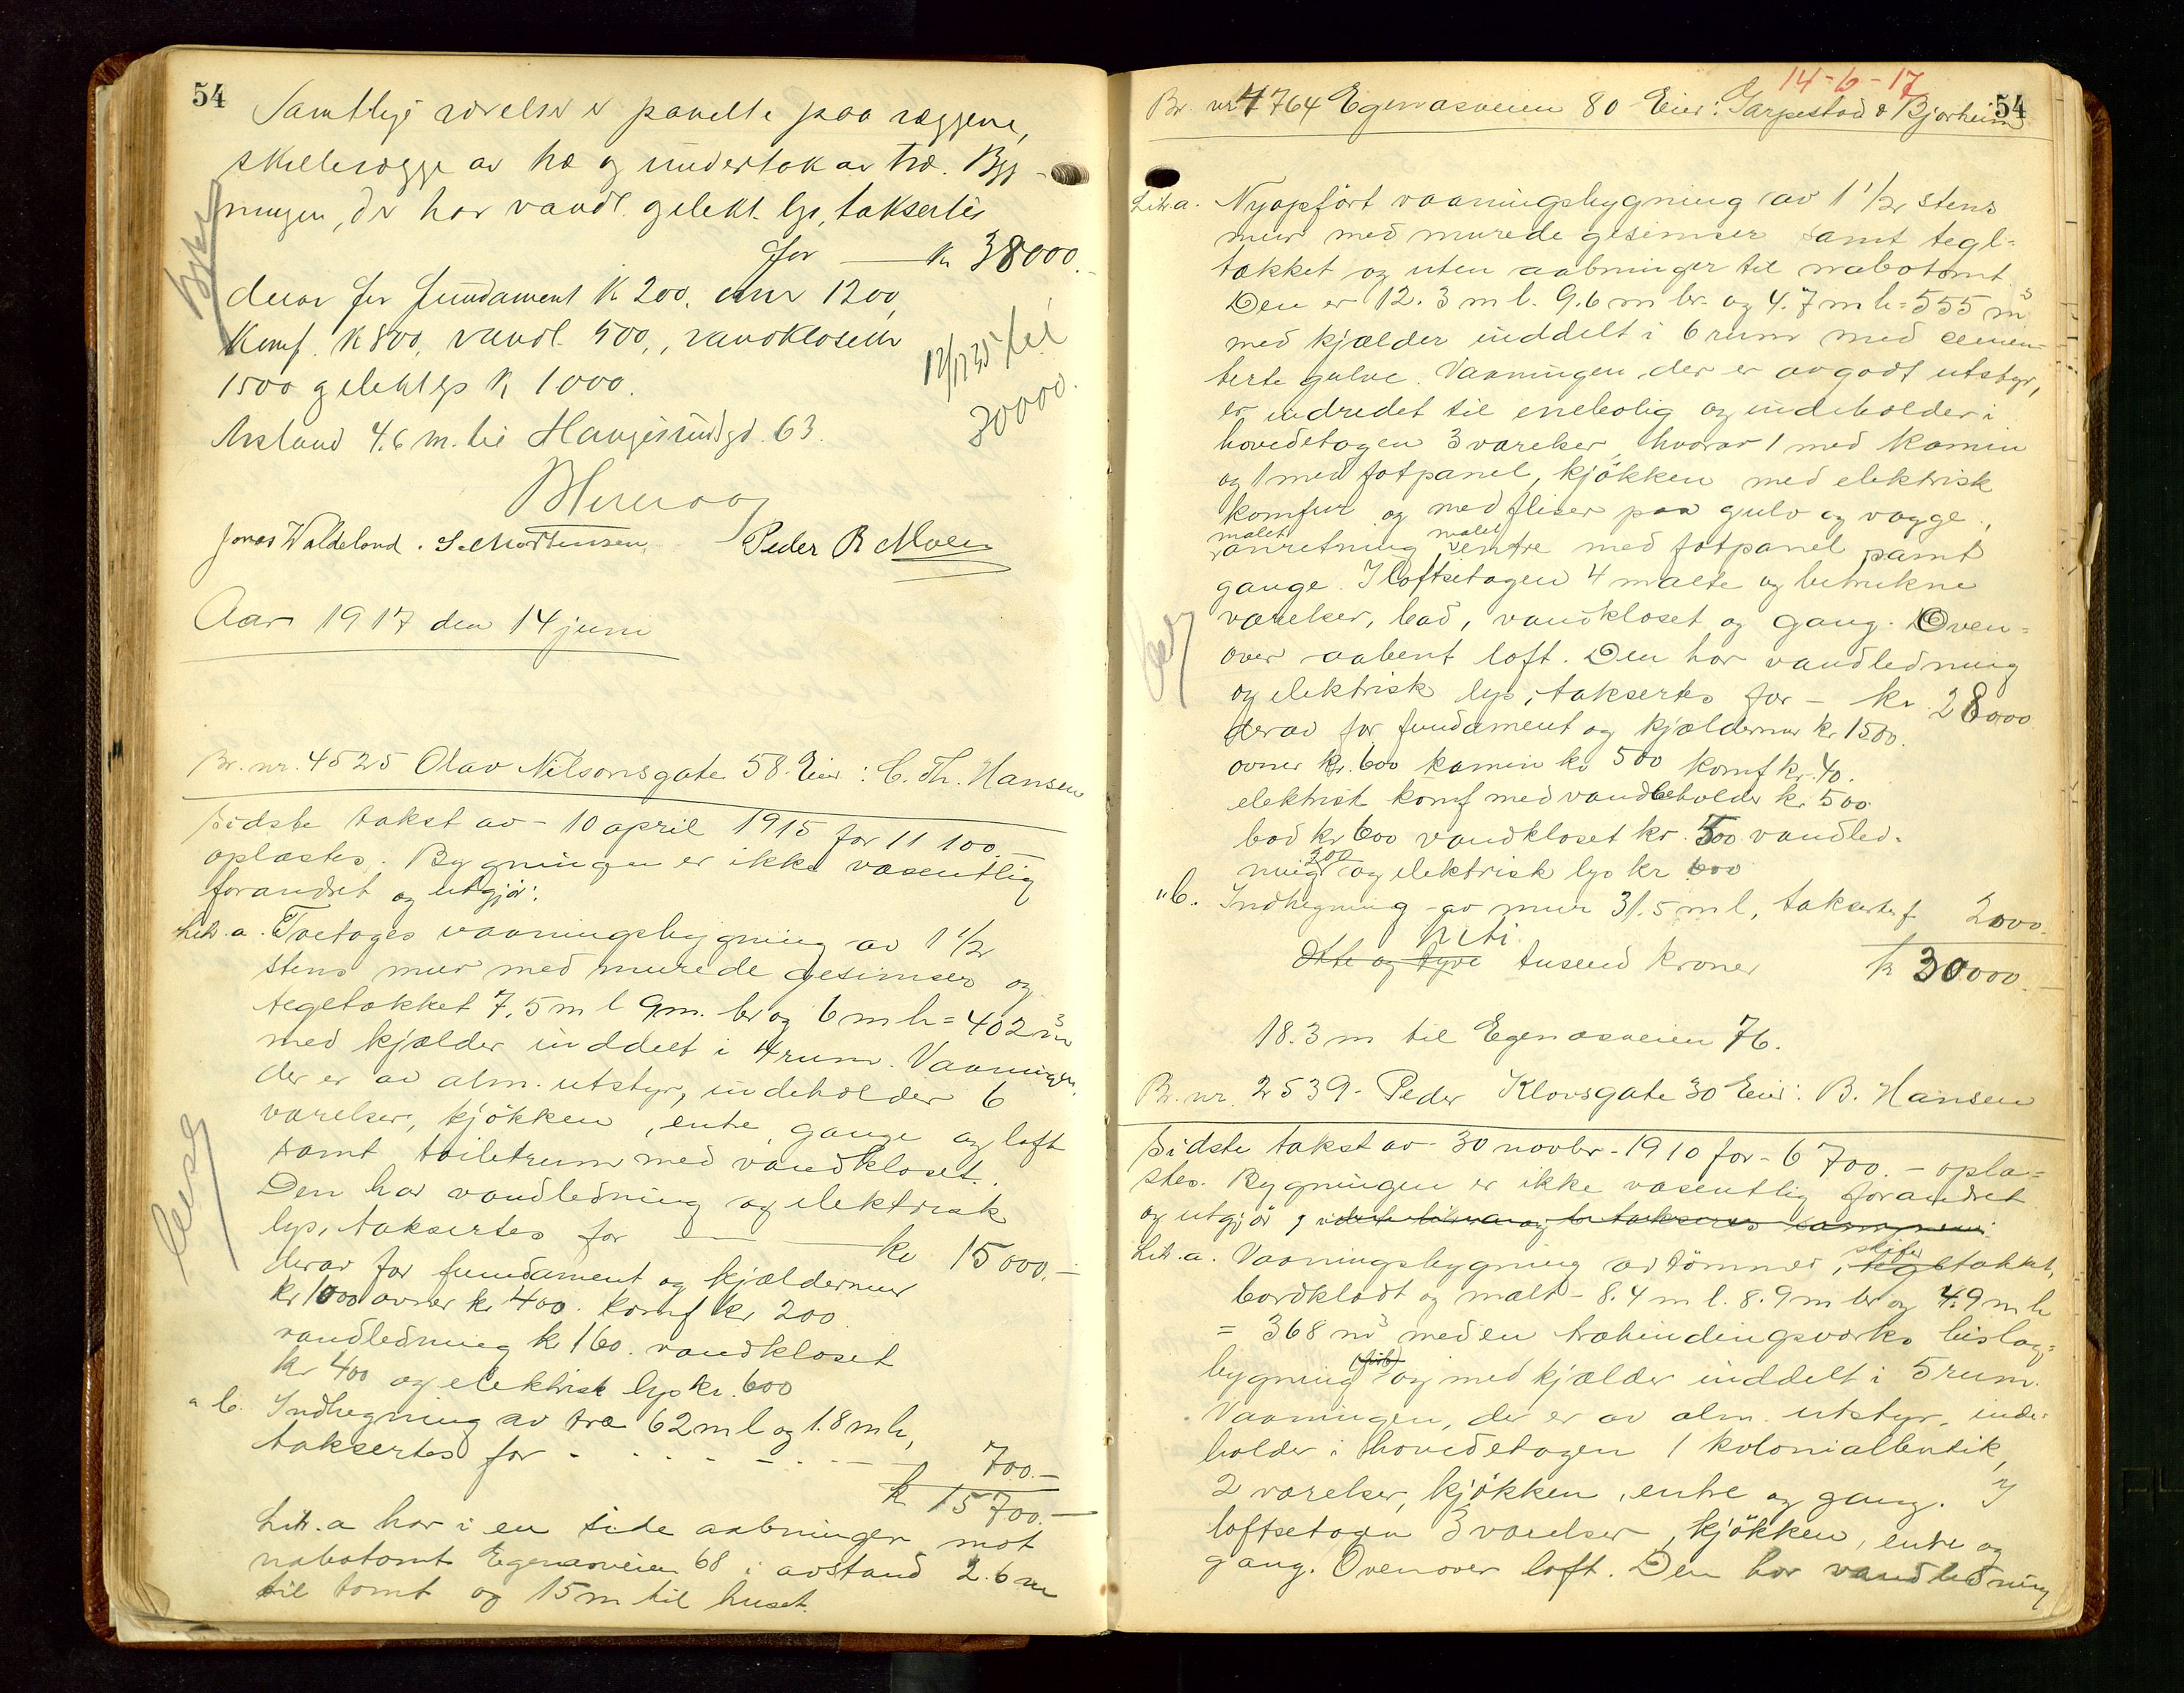 54
Samtlige værelser er panelte paa væggene,
skillevægge av træ og undertak av træ. Byg-
ningen, der har vandl. og elekt. lys, taksertes
for — Kr 38000.-
derav for fundament K 200, ovner 1200,
Komf. K 800, vandl. 500,, vandklosetter
1500 og elekt lys K 1000.
Avstand 4.6 m. til Haugesundgd. 63.
30000.
Jonas Waldeland. S. Mortensen. Peder R Moen
Aar 1917 den 14 juni
Br. nr. 4525 Olav Nilsonsgate 58. Eier: C. Th. Hansen
Sidste takst av - 10 april 1915 for 11 100.—
oplæstes. Bygningen er ikke væsentlig
forandret og utgjør:
Litr. a. Toetages vaaningsbygning av 1 1/2
stens mur med murede gesimser og
tegltækket 7.5 m l 9 m. br og 6 m h = 402 m³
med kjælder inddelt i 4 rum. Vaaningen,
der er av alm. utstyr, indeholder 6
værelser, kjøkken, entre, gange og loft
samt toiletrum med vandkloset.
Den har vandledning og elektrisk
lys, taksertes for — kr 15000.—
derav for fundament og kjældermur
kr 1000 ovner kr 400. komf kr 200
vandledning kr 160. vandkloset
kr 400 og elektrisk lys kr. 600
" b. Indhegning av træ 62 m l og 1.8 m h,
taksertes for - - - - - - 700.—
kr 15700.—
Litr. a har i en side aabninger mot
nabotomt Egenæsveien 68 i avstand 2.6 m
til tomt og 15 m til huset.
14-6-17
Br. nr 4764 Egenæsveien 80 Eier: Garpestad & Bjorheim
54
Litr. a. Nyopført vaaningsbygning av 1 1/2 stens
mur med murede gesimser samt tegl-
tækket og uten aabninger til nabotomt.
Den er 12.3 m l. 9.6 m br. og 4.7 m h = 555 m³
med kjælder inddelt i 6 rum med cemen-
terte gulve. Vaaningen der er av godt utstyr,
er indredet til enebolig og indeholder i
hovedetagen 3 værelser, hvorav 1 med kamin
og 1 med fotpanel, kjøkken med elektrisk
komfur og med fliser paa gulv og vægge,
malet anretning, malet entre med fotpanel samt
gange. I loftsetagen 4 malte og betrukne
værelser, bad, vandkloset og gang. Oven-
over aabent loft. Den har vandledning
og elektrisk lys, taksertes for - kr. 28000
derav for fundament og kjældermur kr. 1500.
ovner kr. 600 kamin kr 500 komf kr. 40.
elektrisk komf med vandbeholder kr. 500.
bad kr 600 vandkloset kr. 500 vandled-
ning 200 og elektrisk lys kr 600
" b. Indhegning av mur 31.5 m l, taksertes f. 2000.
Otte og tyve triti tusend kroner kr 30000.—
18.3 m til Egenæsveien 76.
Br. nr. 2539 - Peder Klowsgate 30 Eier: B. Hansen
Sidste takst av - 30 novbr - 1910 for - 6700.— oplæ-
stes. Bygningen er ikke væsentlig forandret
og utgjør
Litr. a. Vaaningsbygning av tømmer, skifertækket,
bordklædt og malt - 8.4 m l. 8.9 m br og 4.9 m h
= 368 m³ med en træbindingsværks bislag-
bygning og med kjælder inddelt i 5 rum.
Vaaningen, der er av alm. utstyr, inde-
holder i hovedetagen 1 kolonialbutik,
2 værelser, kjøkken, entre og gang. I
loftsetagen 3 værelser, kjøkken, entre og
gang. Ovenover loft. Den har vandledning